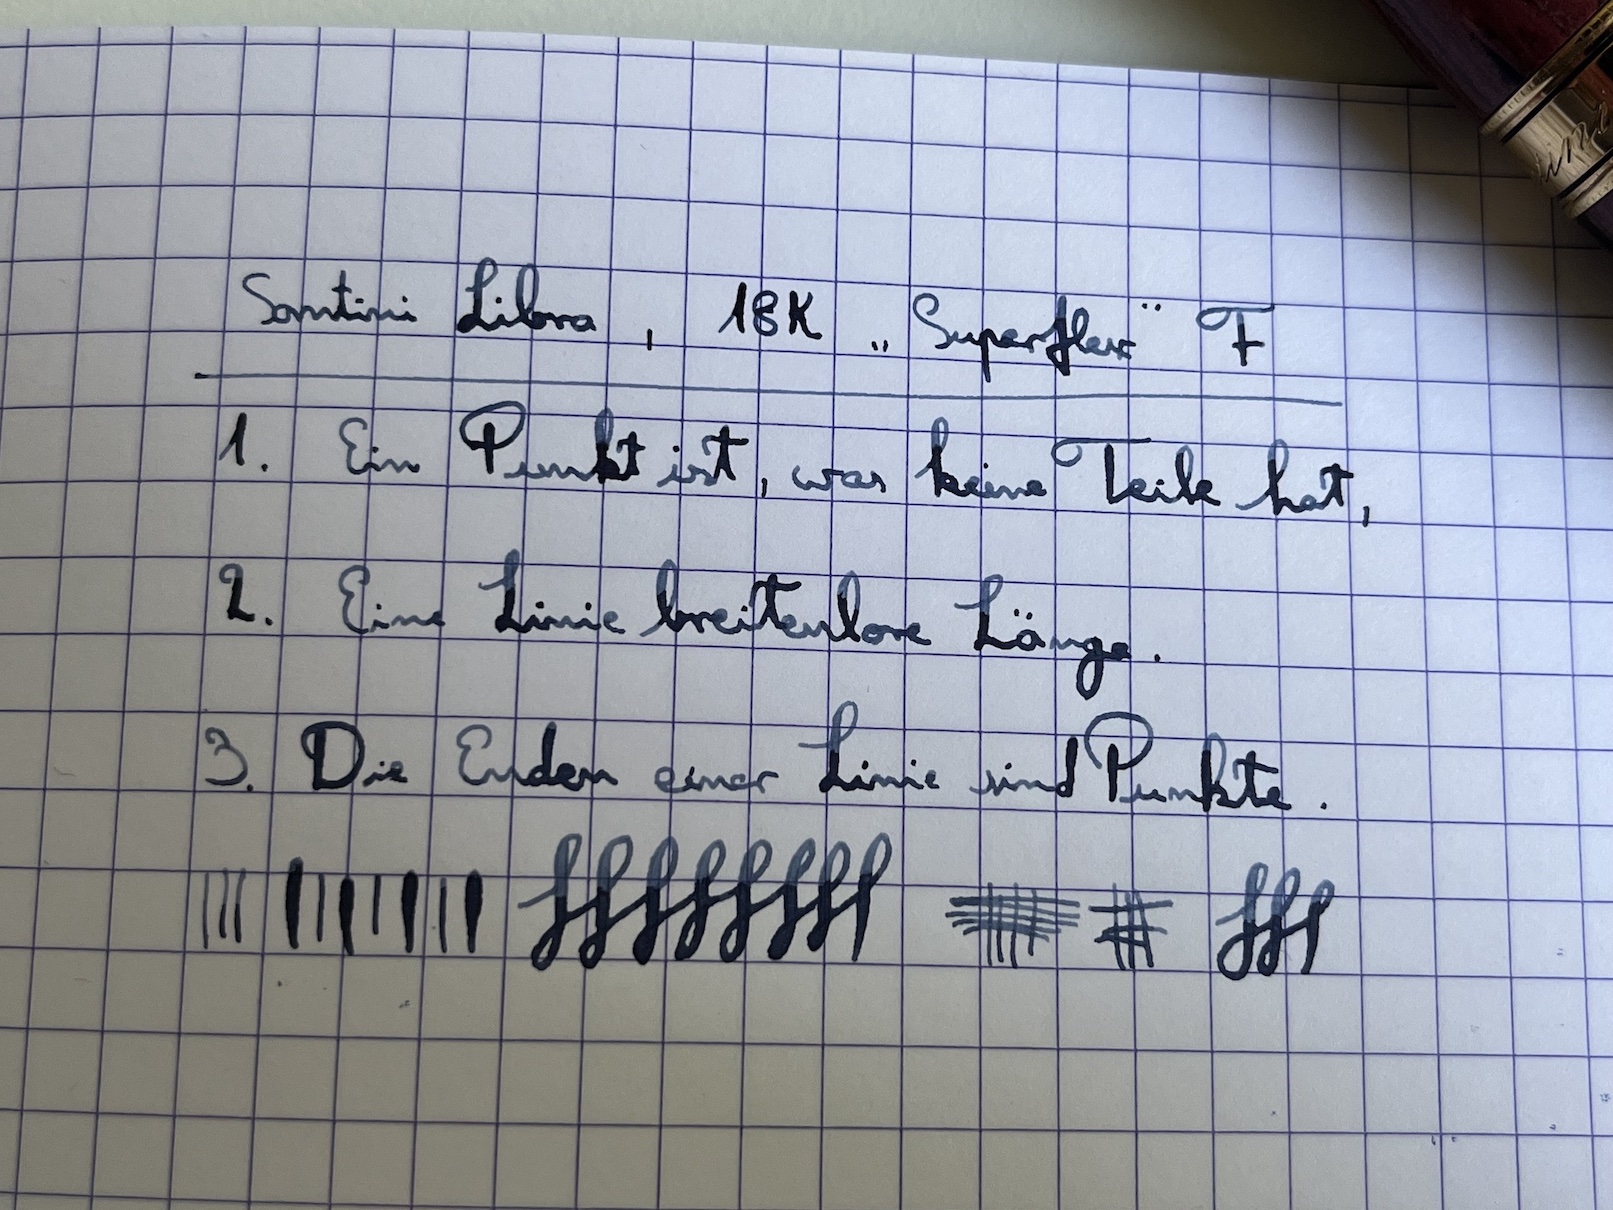 Santini Libra, 18K „Superflex" F
1. Ein Punkt ist, was keine Teile hat,
2. Eine Linie breitenlose Länge.
3. Die Enden einer Linie sind Punkte.